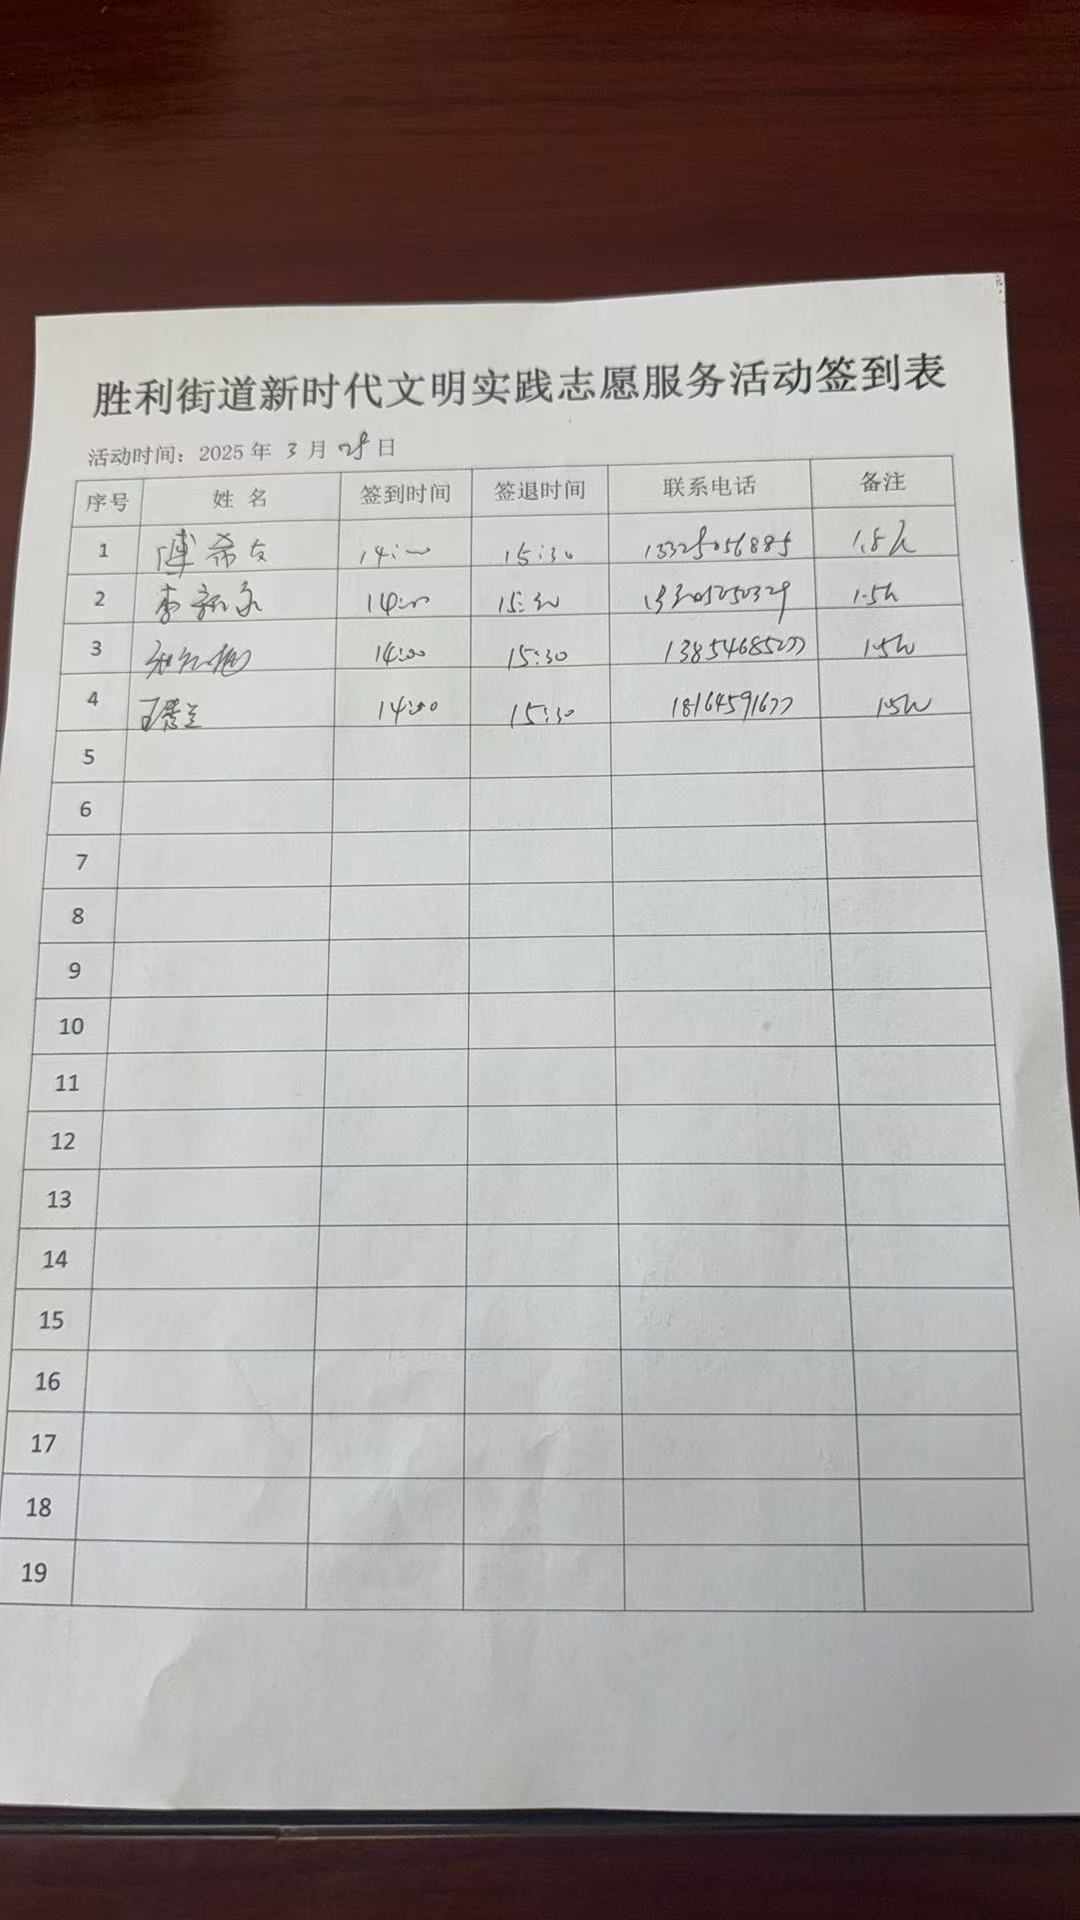 胜利街道新时代文明实践志愿服务活动签到表
活动时间：2025年 3月 28日
序号 姓名 签到时间 签退时间 联系电话 备注
1 傅希友 14:00 15:30 13325056885 1.5h
2 李新永 14:00 15:30 13305250329 1.5h
3 14:00 15:30 13854685277 1.5h
4 王慧兰 14:00 15:30 18164591677 1.5h
5
6
7
8
9
10
11
12
13
14
15
16
17
18
19